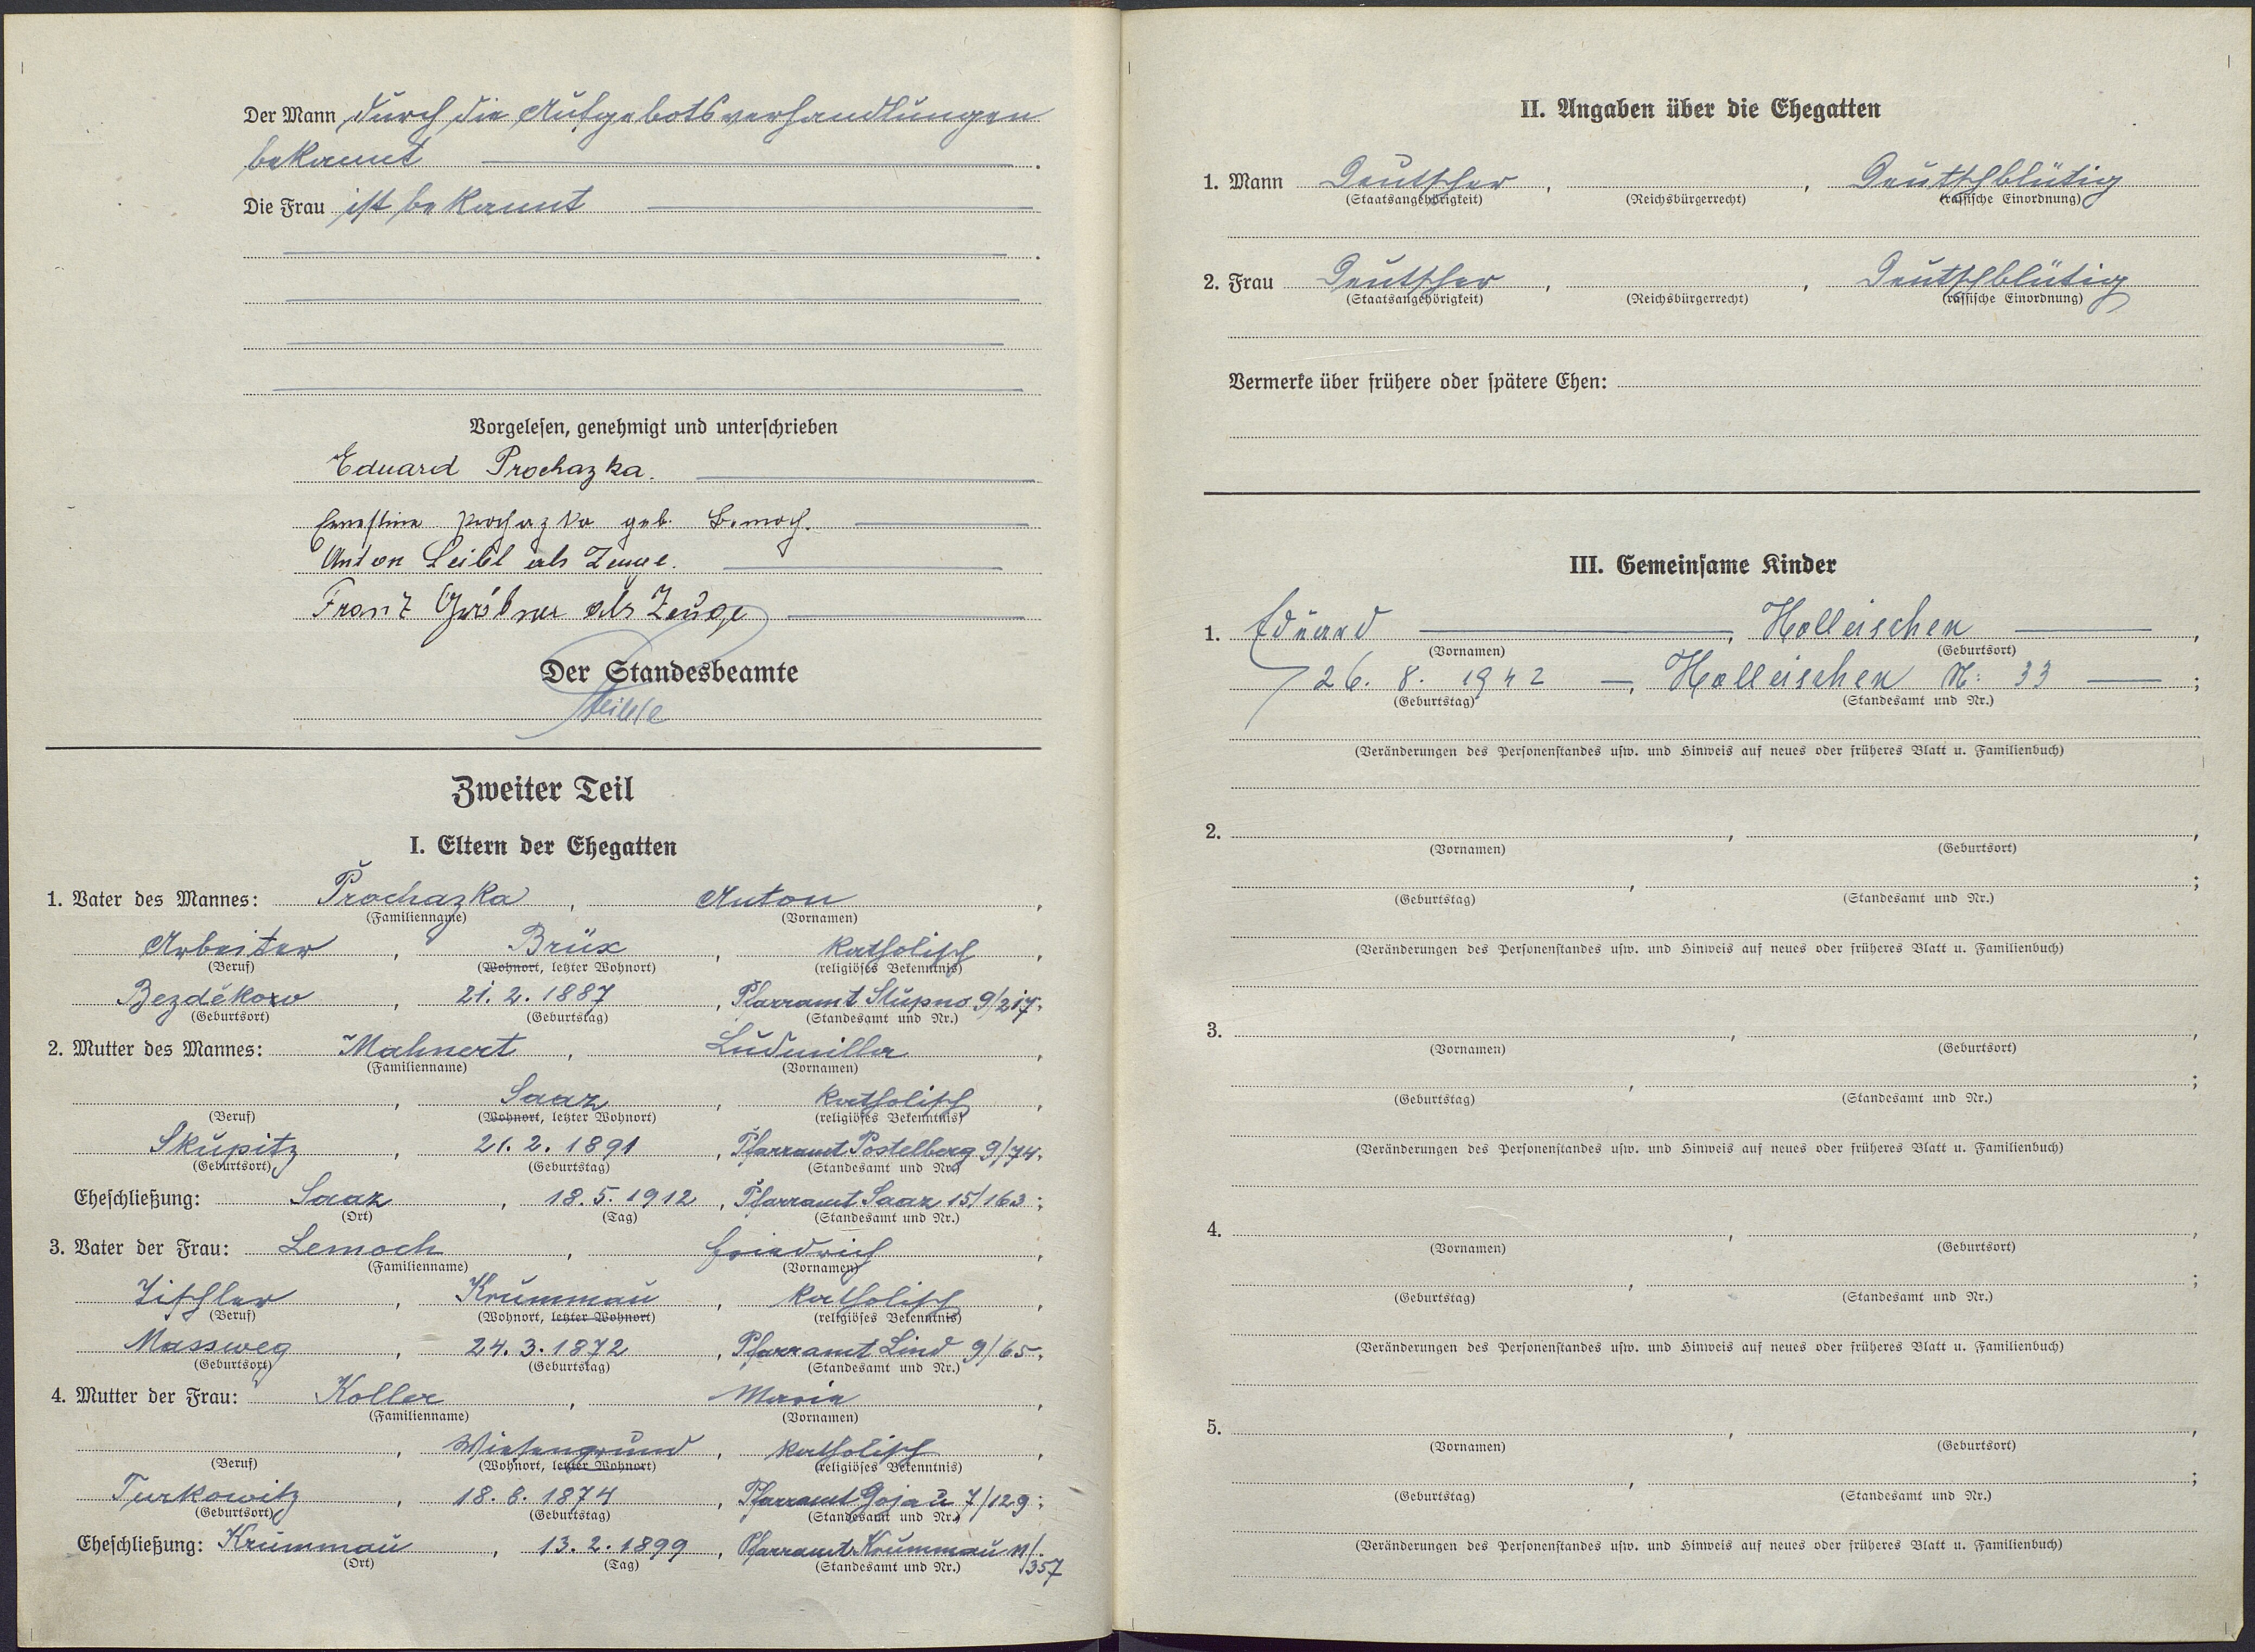 Der Mann durch die Aufgebotsverhandlungen
bekannt .
Die Frau ist bekannt
.
Vorgelesen, genehmigt und unterschrieben
Eduard Prochazka.
Ernestine Prochazka geb. Lemoch.
Anton Leibl als Zeuge.
Franz als Zeuge
Der Standesbeamte
Zweiter Teil
I. Eltern der Ehegatten
1. Vater des Mannes: Prochazka, Anton,
(Familienname) (Vornamen)
Arbeiter, Brüx, katholisch,
(Beruf) (Wohnort, letzter Wohnort) (religiöses Bekenntnis)
Bezděkow, 21. 2. 1887, Pfarramt Stupno 9/217;
(Geburtsort) (Geburtstag) (Standesamt und Nr.)
2. Mutter des Mannes: Mahnert, Ludmilla,
(Familienname) (Vornamen)
, Saaz, katholisch,
(Beruf) (Wohnort, letzter Wohnort) (religiöses Bekenntnis)
Skupitz, 21. 2. 1891, Pfarramt Postelberg 9/74.
(Geburtsort) (Geburtstag) (Standesamt und Nr.)
Eheschließung: Saaz, 18. 5. 1912, Pfarramt Saaz 15/163;
(Ort) (Tag) (Standesamt und Nr.)
3. Vater der Frau: Lemoch, Friedrich,
(Familienname) (Vornamen)
Tischler, Krummau, katholisch,
(Beruf) (Wohnort, letzter Wohnort) (religiöses Bekenntnis)
Massweg, 24. 3. 1872, Pfarramt Lind 9/65.
(Geburtsort) (Geburtstag) (Standesamt und Nr.)
4. Mutter der Frau: Koller, Maria,
(Familienname) (Vornamen)
, Wiesengrund, katholisch,
(Beruf) (Wohnort, letzter Wohnort) (religiöses Bekenntnis)
Turkowitz, 18. 8. 1874, Pfarramt Gojau 7/129;
(Geburtsort) (Geburtstag) (Standesamt und Nr.)
Eheschließung: Krummau, 13. 2. 1899, Pfarramt Krummau 11/
357
(Ort) (Tag) (Standesamt und Nr.)
II. Angaben über die Ehegatten
1. Mann Deutscher, , Deutschblütig
(Staatsangehörigkeit) (Reichsbürgerrecht) (rassische Einordnung)
2. Frau Deutscher, , Deutschblütig
(Staatsangehörigkeit) (Reichsbürgerrecht) (rassische Einordnung)
Vermerke über frühere oder spätere Ehen:
III. Gemeinsame Kinder
1. Eduard, Holleischen,
(Vornamen) (Geburtsort)
26. 8. 1942, Holleischen N: 33;
(Geburtstag) (Standesamt und Nr.)
(Veränderungen des Personenstandes usw. und Hinweis auf neues oder früheres Blatt u. Familienbuch)
2. , ,
(Vornamen) (Geburtsort)
, ;
(Geburtstag) (Standesamt und Nr.)
(Veränderungen des Personenstandes usw. und Hinweis auf neues oder früheres Blatt u. Familienbuch)
3. , ,
(Vornamen) (Geburtsort)
, ;
(Geburtstag) (Standesamt und Nr.)
(Veränderungen des Personenstandes usw. und Hinweis auf neues oder früheres Blatt u. Familienbuch)
4. , ,
(Vornamen) (Geburtsort)
, ;
(Geburtstag) (Standesamt und Nr.)
(Veränderungen des Personenstandes usw. und Hinweis auf neues oder früheres Blatt u. Familienbuch)
5. , ,
(Vornamen) (Geburtsort)
, ;
(Geburtstag) (Standesamt und Nr.)
(Veränderungen des Personenstandes usw. und Hinweis auf neues oder früheres Blatt u. Familienbuch)